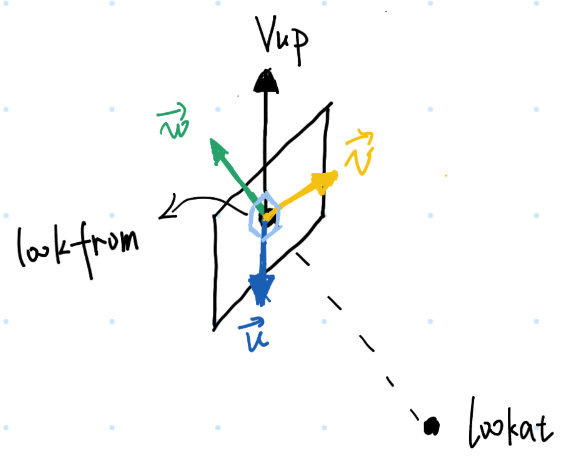 Vup
w
v
lookfrom
u
lookat